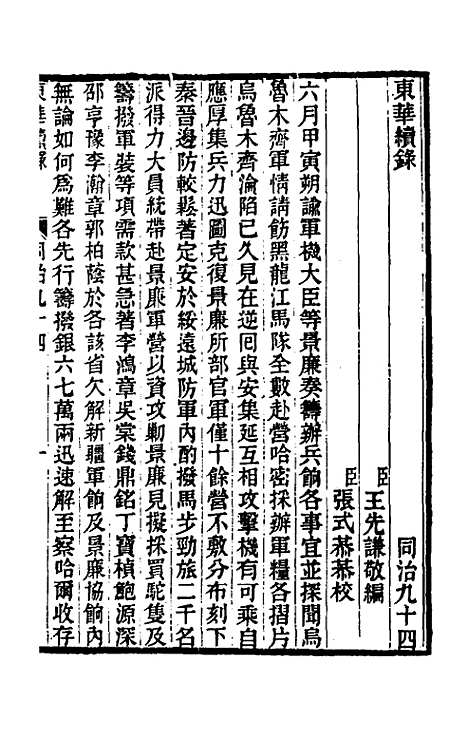 東華續錄　同治九十四
臣王先謙敬編
臣張式恭恭校
六月甲寅朔諭軍機大臣等景廉奏籌辦兵餉各事宜並探聞烏
魯木齊軍情請飭黑龍江馬隊全數赴營哈密採辦軍糧各摺片
烏魯木齊淪陷已久見在逆囘與安集延互相攻擊機有可乘自
應厚集兵力迅圖克復景廉所部官軍僅十餘營不敷分布刻下
秦晉邊防較鬆著定安於綏遠城防軍內酌撥馬步勁旅二千名
派得力大員統帶赴景廉軍營以資攻勦景廉見擬採買駝隻及
籌撥軍裝等項需款甚急著李鴻章吳棠錢鼎銘丁寶楨鮑源深
邵亨豫李瀚章郭柏蔭於各該省欠解新疆軍餉及景廉協餉內
無論如何爲難各先行籌撥銀六七萬兩迅速解至察哈爾收存
東華續錄　同治九十四　一